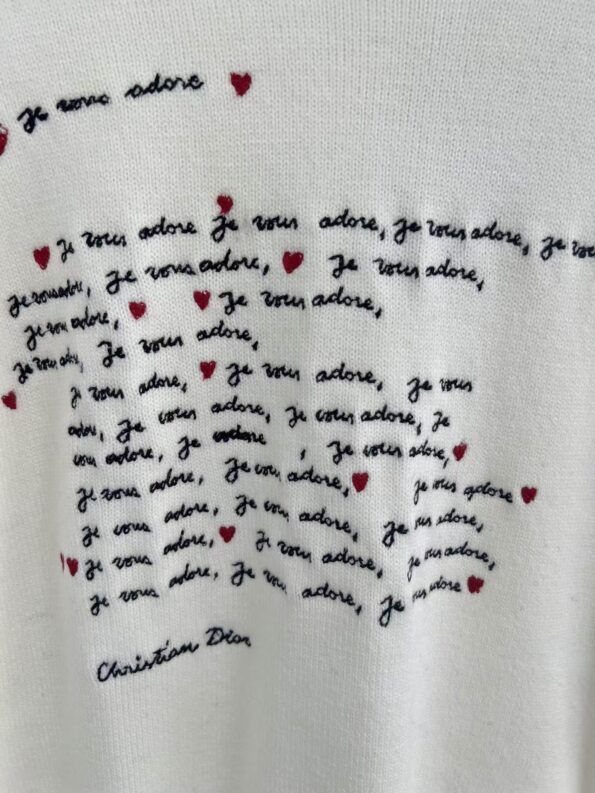 Je vous adore
Je vous adore Je vous adore, Je vous adore, Je vou
Je vous adore, Je vous adore, Je vous adore,
Je vou adore, Je vous adore,
Je vou ador, Je vous adore,
Je vous adore, Je vous adore, Je vous
adore, Je vous adore, Je vous adore, Je
vous adore, Je adore , Je vous adore,
Je vous adore, Je vous adore, Je vous adore
Je vous adore, Je vous adore, Je vous adore,
Je vous adore, Je vous adore, Je vous adore,
Je vous adore, Je vous adore, Je vous adore
Christian Dior